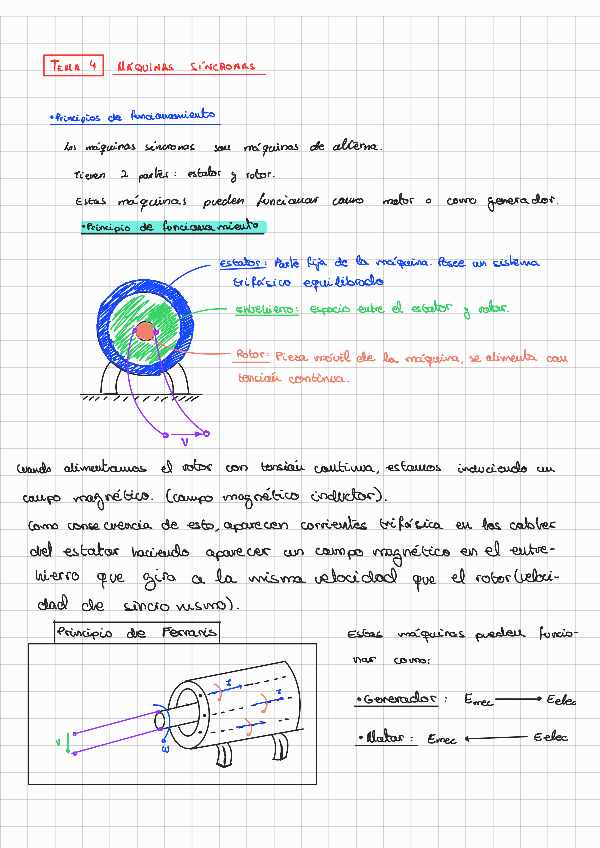 TEMA 4 MÁQUINAS SÍNCRONAS
• Principios de funcionamiento
Las máquinas síncronas son máquinas de alterna.
Tienen 2 partes: estator y rotor.
Estas máquinas pueden funcionar como motor o como generador.
• Principio de funcionamiento
estator: Parte fija de la máquina. Posee un sistema
trifásico equilibrado
entrehierro: espacio entre el estator y rotor.
Rotor: Pieza móvil de la máquina, se alimenta con
tensión continua.
V
Cuando alimentamos el rotor con tensión continua, estamos induciendo un
campo magnético. (campo magnético inductor).
Como consecuencia de esto, aparecen corrientes trifásica en los cables
del estator haciendo aparecer un campo magnético en el entre-
hierro que gira a la misma velocidad que el rotor (veloci-
dad de sincronismo).
Principio de Ferraris
Estas máquinas pueden funcio-
nar como:
• Generador: Emec → Eelec
• Motor: Emec ← Eelec
V
ω